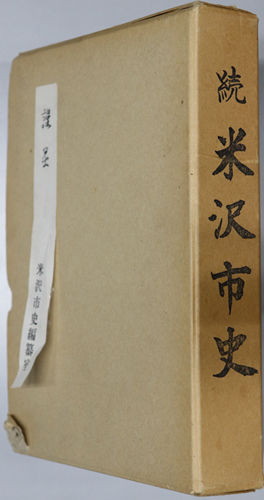 続 米沢市史
謹呈
米沢市史編纂室